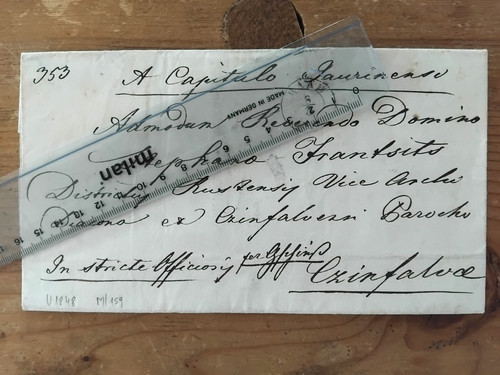 353
A Capitulo Jaurinensi
Admodum Reverendo Domino
Stephano Frantsits
Districtus Rustensis Vice Archi
Diacono et Czinfalvensi Parocho
In stricte Officiosis per
Czinfalvæ
U 1848 M/159
MADE IN GERMANY
0 2 4 5 6 7 8 9 10 11 12 13 14 15 16